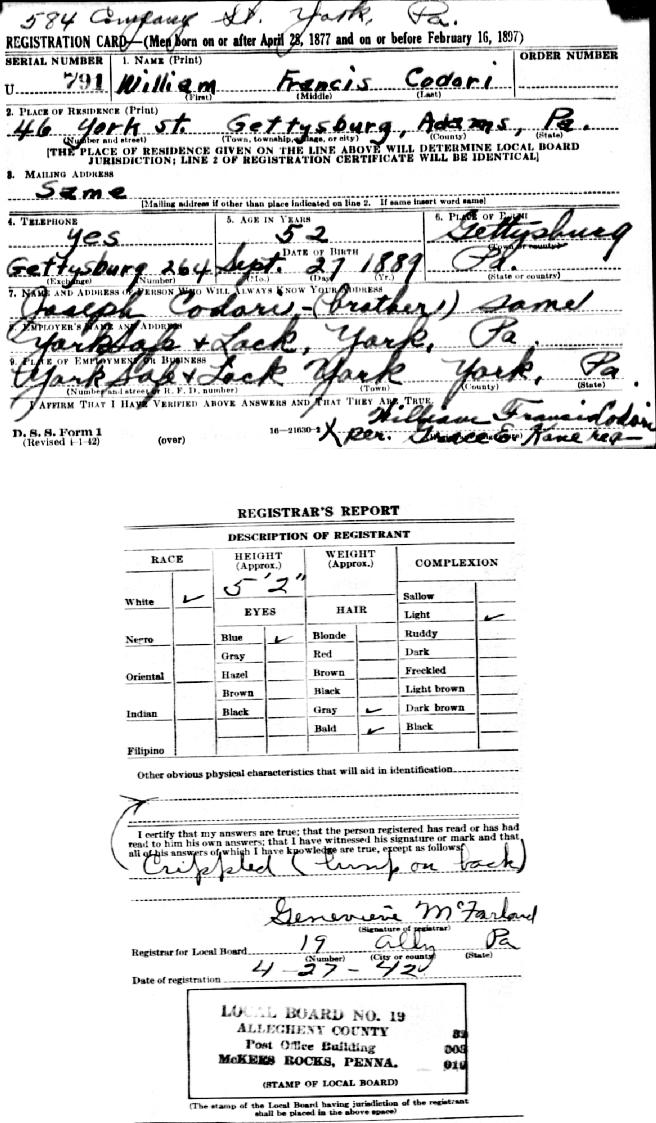 584 Company St. York, Pa.
REGISTRATION CARD—(Men born on or after April 28, 1877 and on or before February 16, 1897)
SERIAL NUMBER 1. NAME (Print) ORDER NUMBER
U 791 William Francis Codori
(First) (Middle) (Last)
2. PLACE OF RESIDENCE (Print)
46 York St. Gettysburg, Adams, Pa.
(Number and street) (Town, township, village, or city) (County) (State)
[THE PLACE OF RESIDENCE GIVEN ON THE LINE ABOVE WILL DETERMINE LOCAL BOARD
JURISDICTION; LINE 2 OF REGISTRATION CERTIFICATE WILL BE IDENTICAL]
3. MAILING ADDRESS
Same
[Mailing address if other than place indicated on line 2. If same insert word same]
4. TELEPHONE 5. AGE IN YEARS 6. PLACE OF BIRTH
yes 52 Gettysburg
DATE OF BIRTH (Town or county)
Gettysburg 264 Sept. 27 1889 Pa.
(Exchange) (Number) (Mo.) (Day) (Yr.) (State or country)
7. NAME AND ADDRESS OF PERSON WHO WILL ALWAYS KNOW YOUR ADDRESS
Joseph Codori - (brother) same
8. EMPLOYER'S NAME AND ADDRESS
York Safe & Lock, York, Pa.
9. PLACE OF EMPLOYMENT OR BUSINESS
York Safe & Lock York York, Pa.
(Number and street or R. F. D. number) (Town) (County) (State)
I AFFIRM THAT I HAVE VERIFIED ABOVE ANSWERS AND THAT THEY ARE TRUE.
William Francis Codori
D. S. S. Form 1
(Revised 4-1-42) (over) 16—21630-2 X per. Grace E. Kane reg
REGISTRAR'S REPORT
DESCRIPTION OF REGISTRANT
RACE HEIGHT (Approx.) WEIGHT (Approx.) COMPLEXION
5'2"
White ✓ Sallow
EYES HAIR Light ✓
Negro Blue ✓ Blonde Ruddy
Gray Red Dark
Oriental Hazel Brown Freckled
Brown Black Light brown
Indian Black Gray ✓ Dark brown
Bald ✓ Black
Filipino
Other obvious physical characteristics that will aid in identification
I certify that my answers are true; that the person registered has read or has had
read to him his own answers; that I have witnessed his signature or mark and that
all of his answers of which I have knowledge are true, except as follows:
Crippled (hump on back)
Genevieve McFarland
(Signature of registrar)
Registrar for Local Board 19 Ally Pa
(Number) (City or county) (State)
Date of registration 4-27-42
LOCAL BOARD NO. 19
ALLEGHENY COUNTY
Post Office Building 003
McKEES ROCKS, PENNA. 019
(STAMP OF LOCAL BOARD)
(The stamp of the Local Board having jurisdiction of the registrant
shall be placed in the above space)